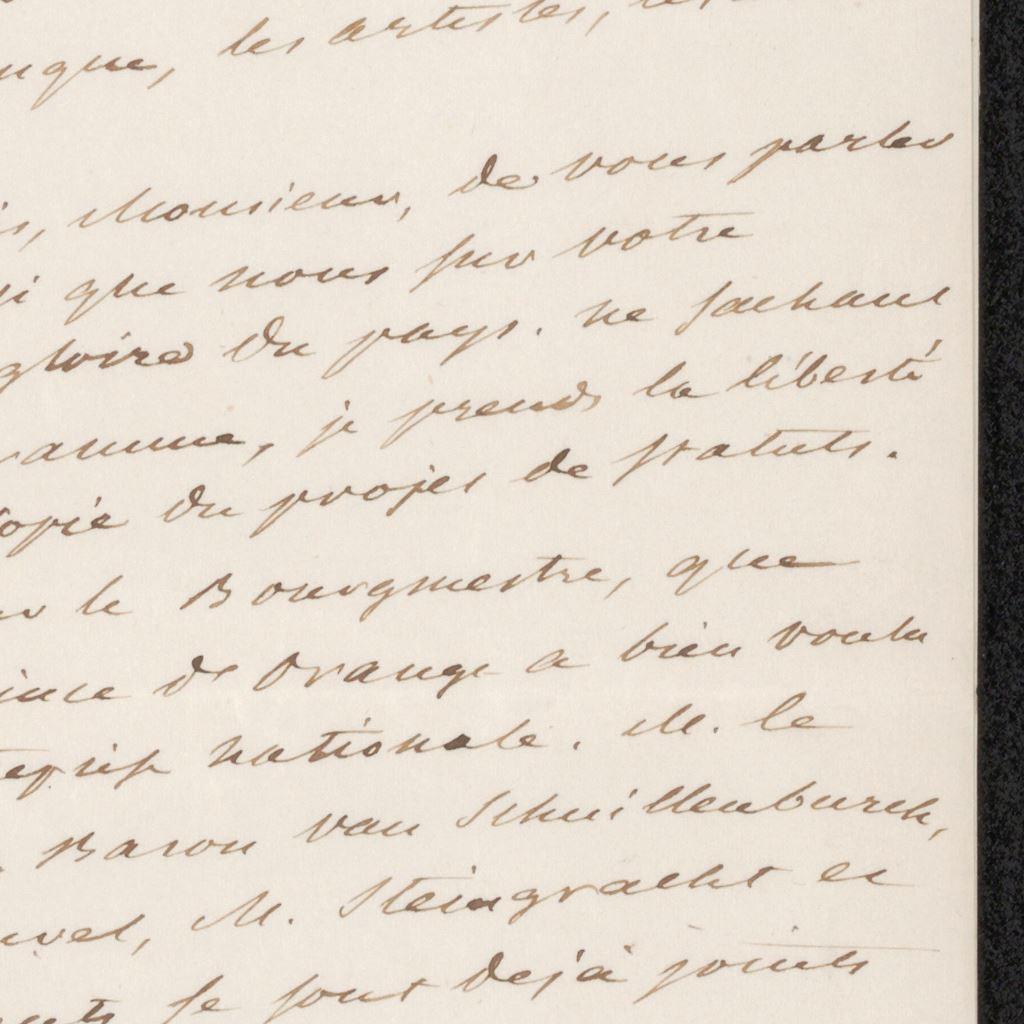 les artistes,
Monsieur, de vous parler
que nous sur votre
gloire du pays. ne sachant
je prends la liberté
copie du projet de statuts.
le Bourgmestre, que
de Orange a bien voulu
nationale. M. le
Baron van Schuillenburch,
M. Steingracht et
se sont dejà joints